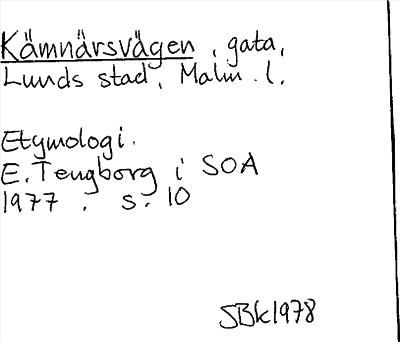 Kämnärsvägen, gata,
Lunds stad, Malm. l.
Etymologi.
E. Tengborg i SOA
1977. s. 10
SBk1978